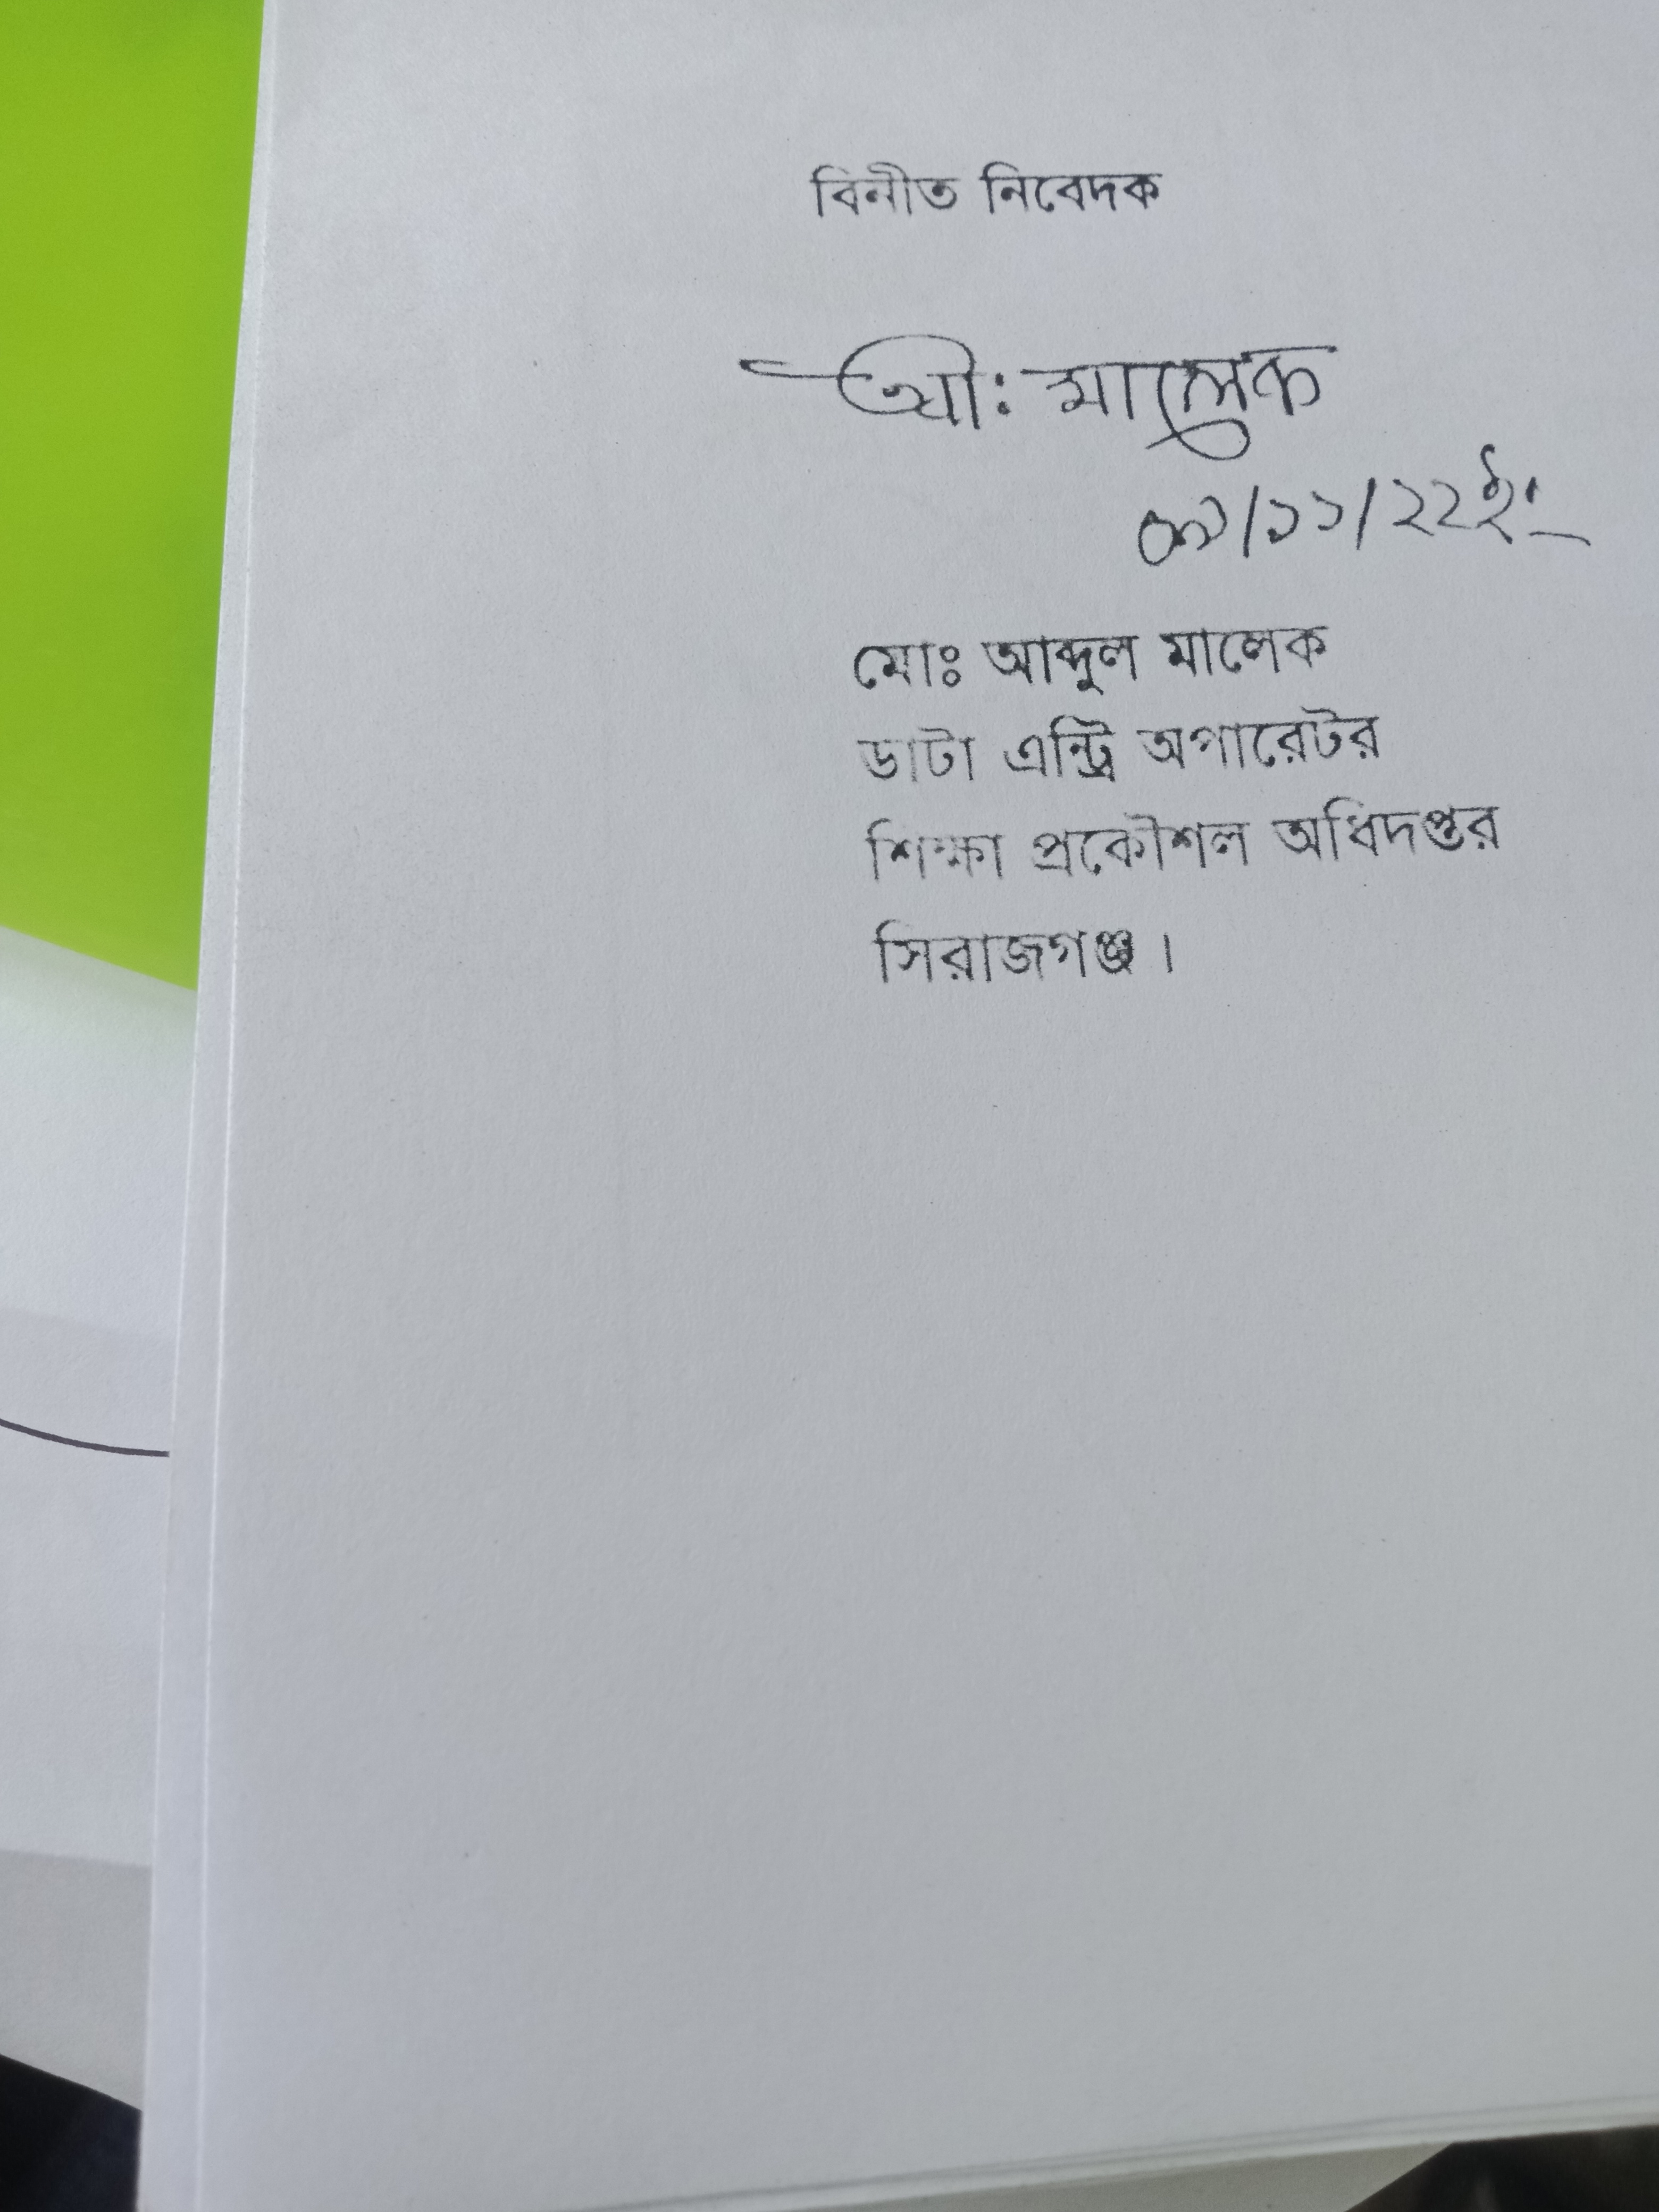 বিনীত নিবেদক
আ: মালেক
/১১/২২ইং
মোঃ আব্দুল মালেক
ডাটা এন্ট্রি অপারেটর
শিক্ষা প্রকৌশল অধিদপ্তর
সিরাজগঞ্জ।